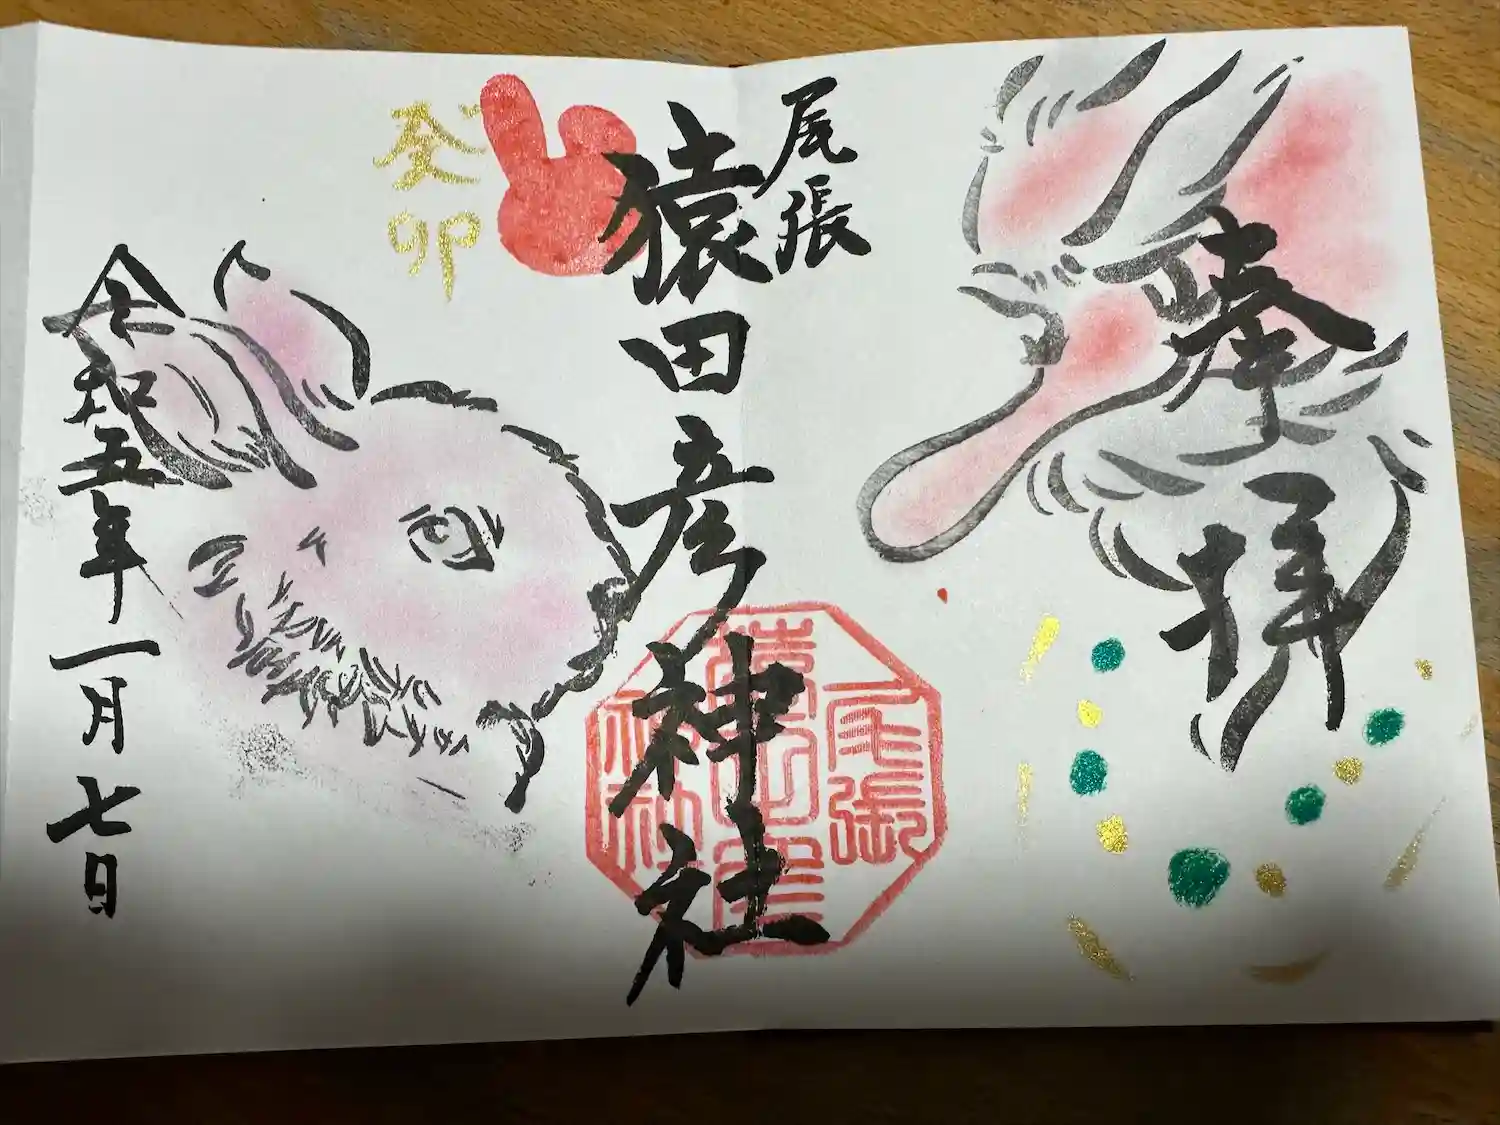 奉拝
尾張
猿田彦神社
癸卯
令和五年一月七日
尾張
猿田彦
神社